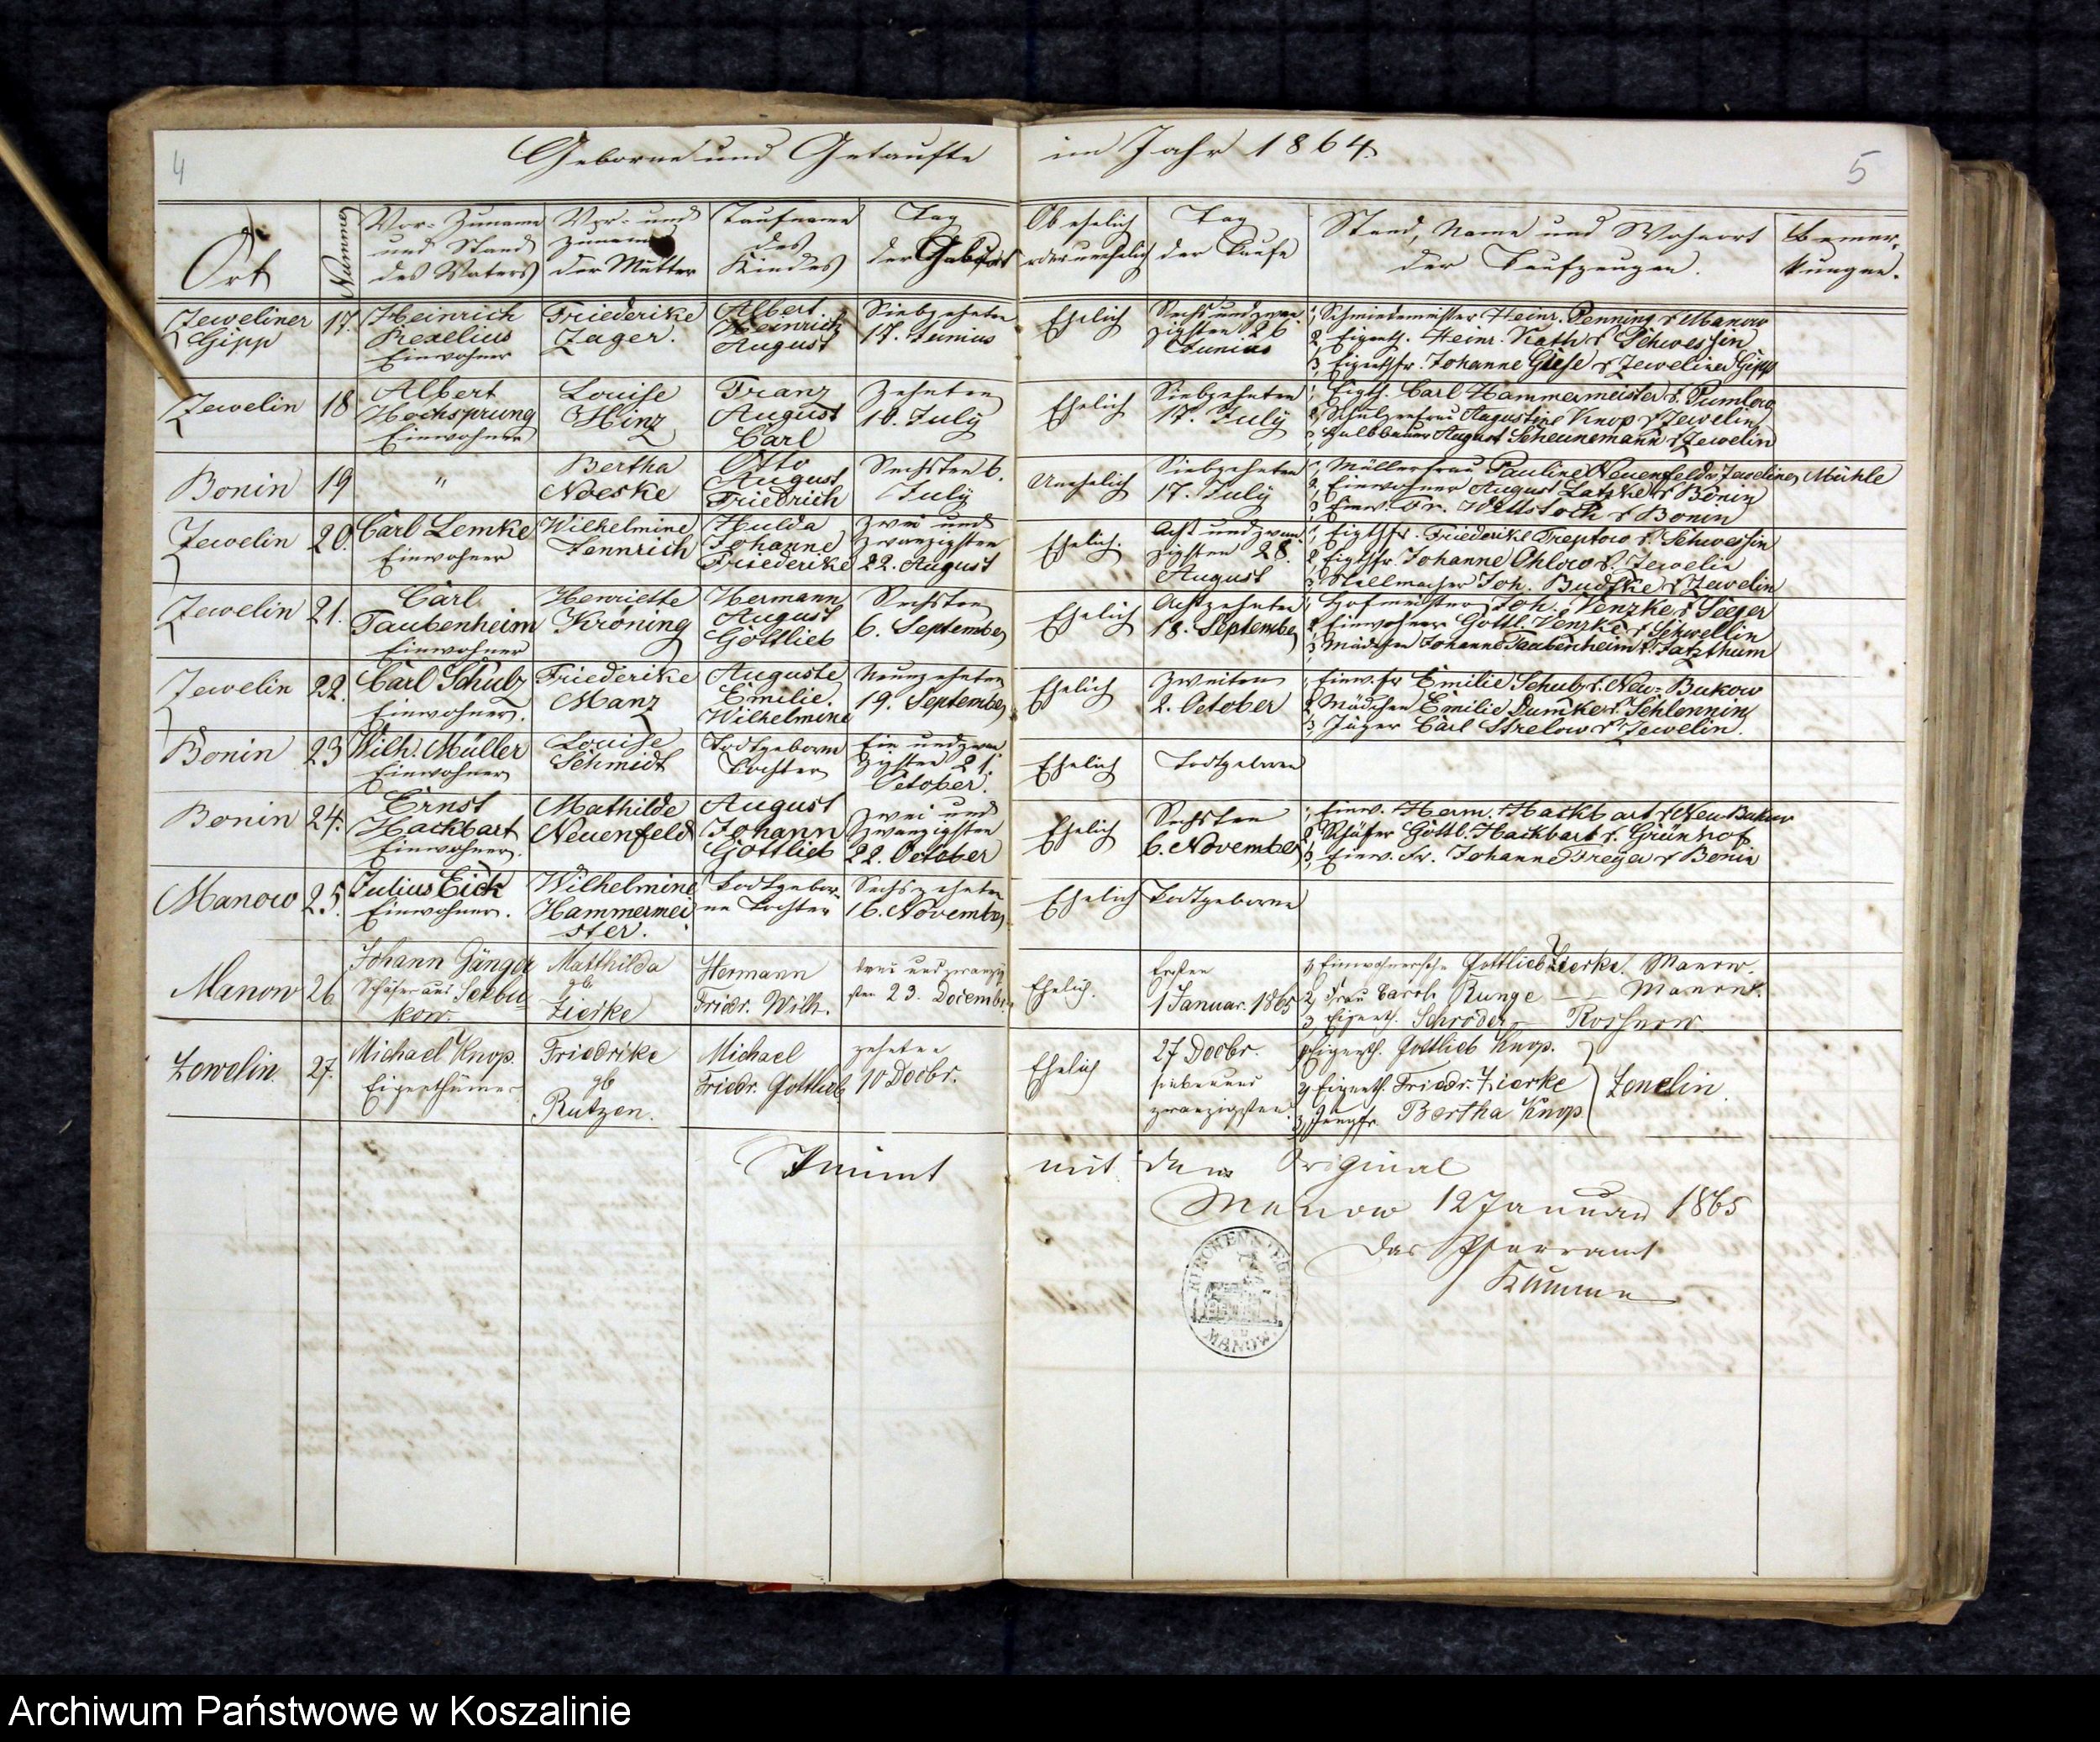 4
Geborne und Getaufte im Jahr 1864.
5
Ort
Nummer
Vor- Zuname und Stand des Vaters
Vor- und Zuname der Mutter
Taufname des Kindes
Tag der Geburt
Ob ehelich oder unehelich
Tag der Taufe
Stand, Name und Wohnort der Taufzeugen.
Bemerkungen.
Zeweliner Gipp
17.
Heinrich
Rexelius
Einwohner
Friederike
Zager.
Albert.
Heinrich
August
Siebzehnten
17. Junius
Ehelich
Sechs und zwan
zigsten 26
Junius
1, Schmiedemeister Heinr. Penning z. Manow
2, Eigenth. Heinr. Kath z. Schwessin
3, Eigenthfr. Johanne Giese z. Zeweliner Gipp
Zewelin
18
Albert
Hochsprung
Einwohner
Louise
Hinz
Franz
August
Carl
Zehnten
10. July
Ehelich
Siebzehnten
17. July
1, Eigth. Carl Hammermeister z. Pumlow
2, Schulzenfrau Augustine Knop z. Zewelin
3, Halbbauer August Scheunemann z. Zewelin
Bonin
19
"
Bertha
Noeske
Otto
August
Friedrich
Sechsten 6.
July
Unehelich
Siebzehnten
17. July
1, Müllerfrau Pauline Neuenfeld z. Zeweliner Mühle
2, Einwohner August Latzke z. Bonin
3, Einw. Fr. Wittstock z. Bonin
Zewelin
20.
Carl Lemke
Einwohner
Wilhelmine
Jennrich
Hulda
Johanne
Friederike
Zwei und
zwanzigsten
22. August
Ehelich.
Acht und zwan
zigsten 28.
August
1, Eigthfr. Friederike Treptow z. Schwessin
2, Eigthfr. Johanne Ohlow z. Zewelin
3, Stellmacher Joh. Budtke z. Zewelin
Zewelin
21.
Carl
Taubenheim
Einwohner
Henriette
Kröning
Hermann
August
Gottlieb
Sechsten
6. September
Ehelich
Achtzehnten
18. September
1, Hofmeister Joh. Venzke z. Seeger
2, Einwohner Gottl. Venzke z. Schwellin
3, Mädchen Johanne Taubenheim z. Tatzthum
Zewelin
22.
Carl Schulz
Einwohner.
Friederike
Manz
Auguste
Emilie.
Wilhelmine
Neunzehnten
19. September
Ehelich
Zweiten
2. October
1, Einw. fr Emilie Schulz z. Neu-Bukow
2, Mädchen Emilie Dumke z. Schlennin
3, Jäger Carl Strelow z. Zewelin.
Bonin
23
Wilh. Müller
Einwohner
Louise
Schmidt
Todtgeborne
Tochter
Ein und zwan
zigsten 21.
October.
Ehelich
Todtgeboren
Bonin
24.
Ernst
Hackbart
Einwohner.
Mathilde
Neuenfeld
August
Johann
Gottlieb
Zwei und
zwanzigsten
22. October
Ehelich
Sechsten
6. November
1, Einw. Herm. Hackbart z. Neu Bukow
2, Schäfer Gottl. Hackbart z. Grünhof
3, Einw. Fr. Johanne Freyer z. Bonin
Manow
25.
Julius Eick
Einwohner.
Wilhelmine
Hammermei
ster.
Todtgebor
ne Tochter
Sechszehnten
16. November
Ehelich
Todtgeborne
Manow
26
Johann Gänger
Schäfer aus Seebu
kow.
Matthilda
gb
Zierke
Hermann
Friedr. Wilh.
drei und zwanzig
sten 23. Decembr.
Ehelich.
Ersten
1 Januar. 1865
1, Gottlieb Zierke. Manow.
2, Frau Carol. Runge — Manow.
3, Eigenth. Schröder — Rossnow.
Zewelin.
27.
Michael Knop.
Eigenthümer
Friedrike
gb
Rutzen.
Michael
Friedr. Gottlieb
zehnten
10 Decbr.
Ehelich
27 Decbr.
sieben und
zwanzigsten.
1, Eigenth. Gottlieb Knop.
2, Eigenth. Friedr. Zierke
3, Jungfr. Bertha Knop
Zewelin.
Stimmt mit dem Original
Manow 12 Januar 1865
Das Pfarramt
MANOW
Archiwum Państwowe w Koszalinie